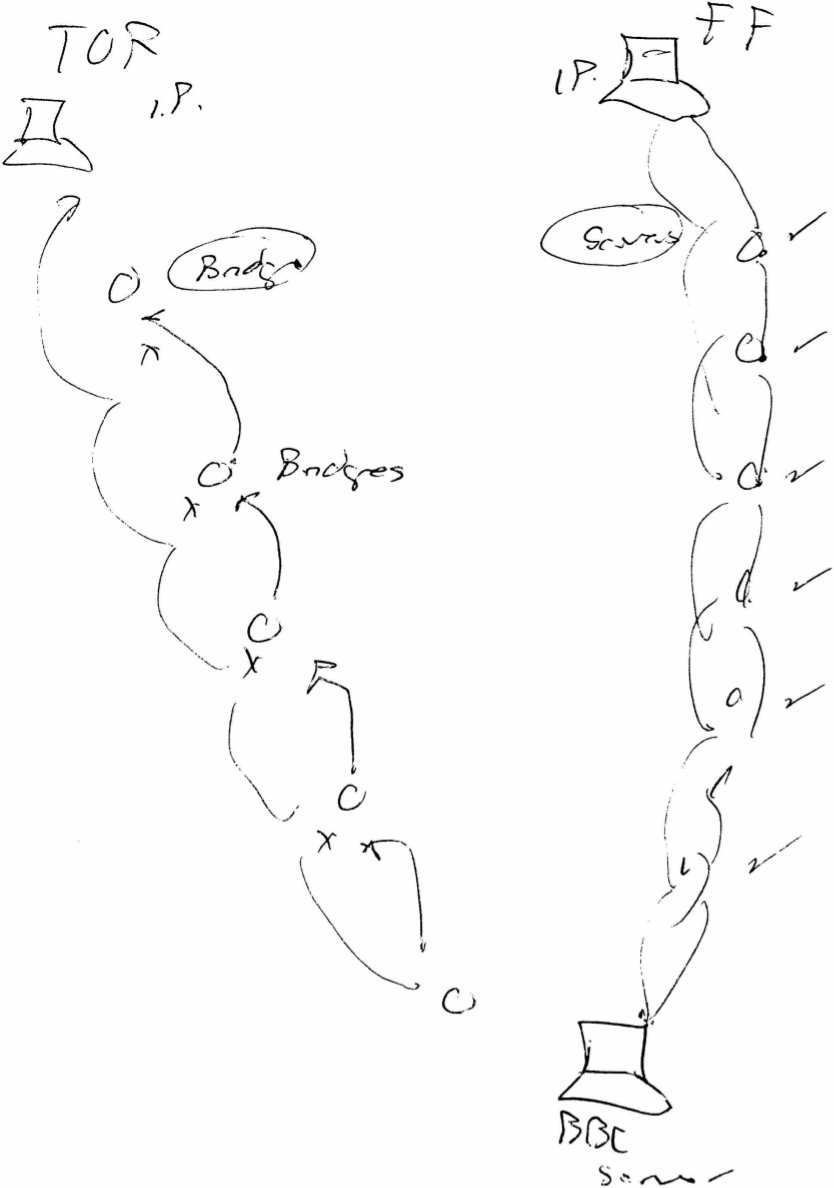 TOR
I.P.
Bridge
Bridges
FF
I.P.
Servers
BBC
Server